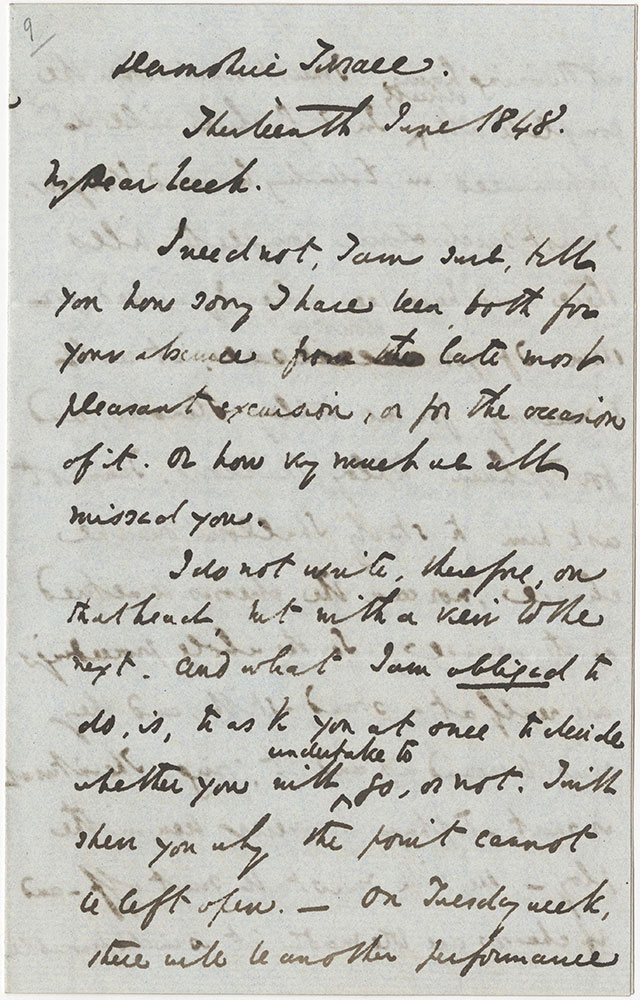 9
Devonshire Terrace.
Thirteenth June 1848.
My Dear Leech.
I need not, I am sure, tell
you how sorry I have been, both for
your absence from the late most
pleasant excursion, or for the occasion
of it. Or how very much we all
missed you.
I do not write, therefore, on
that head, but with a view to the
next. And what I am obliged to
do, is, to ask you at once to decide
whether you will undertake to go, or not. I will
shew you why the point cannot
be left open. — On Tuesday week,
there will be another performance